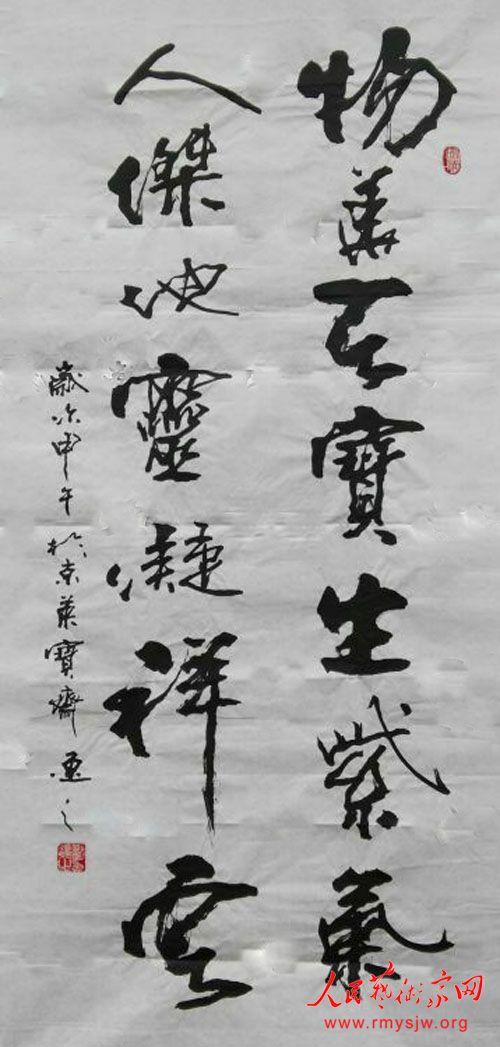 物華天寶生紫氣
人傑地靈凝祥雲
歲次甲午於京華寶齋
人民藝術家网
www.rmysjw.org